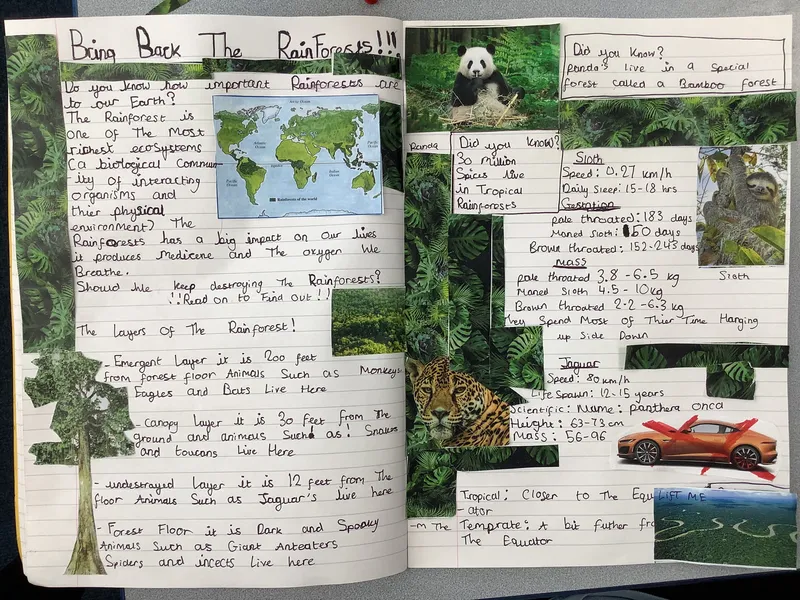 Bring Back The RainForests!!!
Do you know how important Rainforests are
to our Earth?
The Rainforest is
one of The Most
richest ecosystems
(a biological Commun-
ity of interacting
organisms and
thier physical
environment) The
Rainforests has a big impact on Our lives
it produces Medicene and The oxygen We
Breathe.
Should We keep destroying The Rainforests?
!!Read on to Find Out!!
The Layers of The Rainforest!
- Emergent Layer it is 200 feet
from forest floor Animals Such as Monkeys
Eagles and Bats Live Here
- Canopy Layer it is 30 feet from The
ground and animals Such as! Snakes
and toucans Live Here
- undestrayid Layer it is 12 feet from The
floor Animals Such as Jaguar's live here
- Forest Floor it is Dark and Spooky
Animals Such as Giant Anteaters
Spiders and incects Live here
Arctic Ocean
Atlantic Ocean
Pacific Ocean
Pacific Ocean
Equator
Indian Ocean
Rainforests of the world
Panda
Did you Know?
Panda's live in a Special
forest called a Bamboo forest
Did you Know?
30 Million
Spices live
in Tropical
Rainforests
Sloth
Speed: 0.27 km/h
Daily Sleep: 15-18 hrs
Gestation
pale throated: 183 days
Maned Sloth: 150 days
Brown throated: 152-243 days
Mass
pale throated 3.8 - 6.5 kg
Maned Sloth 4.5 - 10kg
Brown throated 2.2 - 6.3 kg
They Spend Most of Thier Time Hanging
up Side Down
Sloth
Jaguar
Speed: 80 km/h
Life Spawn: 12-15 years
Scientific: Name: panthera onca
Height: 63-73 cm
Mass: 56-96
Tropical: Closer to The Equ
-ator
-m The
Temprate: A bit futher fr
The Equator
LIFT ME